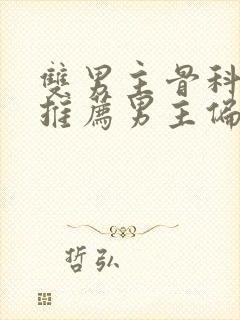 雙男主骨科
推薦男主偏
哲弘